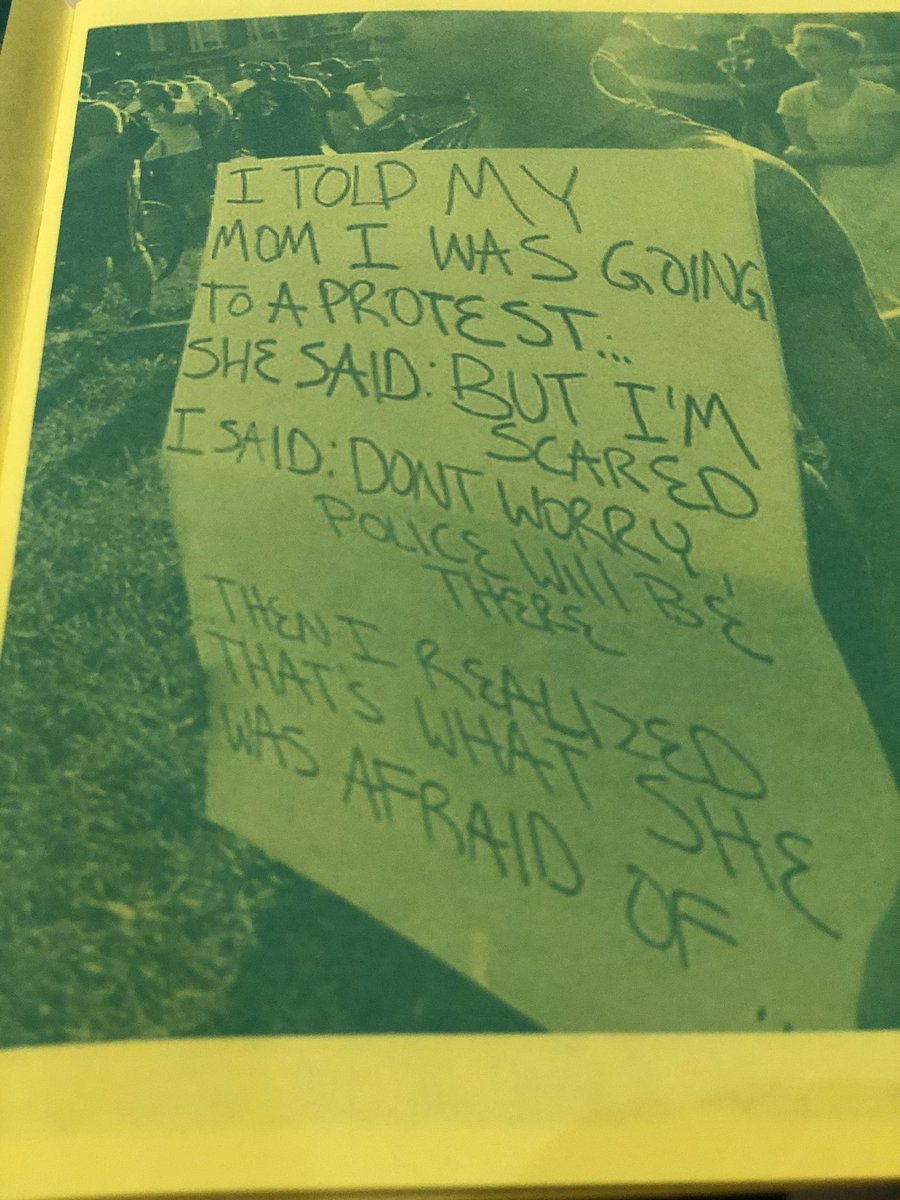 I TOLD MY
MOM I WAS GOING
TO A PROTEST...
SHE SAID: BUT I'M
SCARED
I SAID: DONT WORRY,
POLICE WILL BE
THERE
THEN I REALIZED
THAT'S WHAT SHE
WAS AFRAID OF